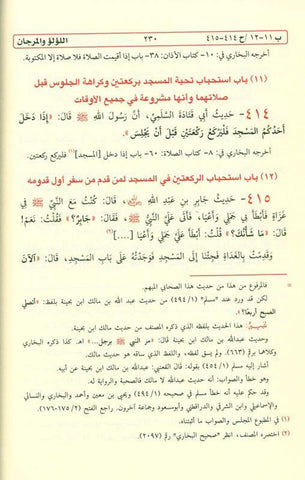 ب ١١-١٢/ح ٤١٤-٤١٥ ٢٣٠ اللؤلؤ والمرجان
أخرجه البخاري في: ١٠- كتاب الأذان: ٣٨- باب إذا أقيمت الصلاة فلا صلاة إلا المكتوبة.
(١١) باب استحباب تحية المسجد بركعتين وكراهة الجلوس قبل
صلاتهما وأنها مشروعة في جميع الأوقات
٤١٤- حديث أَبِي قَتَادَةَ السَّلَمِيِّ، أَنَّ رَسُولَ اللَّهِ ﷺ قَالَ: «إِذَا دَخَلَ
أَحَدُكُمُ الْمَسْجِدَ، فَلْيَرْكَعْ رَكْعَتَيْنِ قَبْلَ أَنْ يَجْلِسَ».
أخرجه البخاري في: ٨- كتاب الصلاة: ٦٠- باب إذا دخل [المسجد](١) فليركع ركعتين.
(١٢) باب استحباب الركعتين في المسجد لمن قدم من سفر أول قدومه
٤١٥- حديث جَابِرِ بْنِ عَبْدِ اللَّهِ، قَالَ: كُنْتُ مَعَ النَّبِيِّ ﷺ فِي
غَزَاةٍ فَأَبْطَأَ بِي جَمَلِي وَأَعْيَا، فَأَتَى عَلَيَّ النَّبِيُّ ﷺ، فَقَالَ: «جَابِرٌ؟» فَقُلْتُ: نَعَمْ!
قَالَ: «مَا شَأْنُكَ؟» قُلْتُ: أَبْطَأَ عَلَيَّ جَمَلِي وَأَعْيَا [....](٢)
وَقَدِمْتُ بِالْغَدَاةِ فَجِئْنَا إِلَى الْمَسْجِدِ فَوَجَدْتُهُ عَلَى بَابِ الْمَسْجِدِ، قَالَ: «آلآنَ
فالمرفوع من هذا من حديث هذا الصحابي المبهم.
لكن قد ورد عند «مسلم» (٤٩٤/١) من حديث عبد الله بن مالك ابن بحينة بلفظ: «أتصلي
الصبح أربعًا؟».
هذا الحديث بلفظه الذي ذكره المصنف من حديث مالك ابن بحينة.
وكلاهما برقم (٦٦٣). ولم يسق لفظه، واللفظ الذي ساقه هو حديث مالك.
أشار إليه مسلم (٤٩٤/١) بقوله: قال القعنبي: عبد الله بن مالك ابن بحينة عن أبيه.
وهو خطأ والصواب: أنه حديث عبدالله لا مالك فالصحبة والرواية له.
وقد حكم عليه أنه خطأ مسلم في صحيحه (٤٩٤/١) ويحيى بن معين وأحمد والبخاري والنسائي
والإسماعيلي وابن الشرقي والدارقطني وأبومسعود وجماعة آخرون. راجع الفتح (١٧٥/٢-١٧٦).
(١) في المطبوع المجلس والصواب ما أثبتناه.
(٢) اختصره المصنف، انظر «صحيح البخاري» رقم (٢٠٩٧).